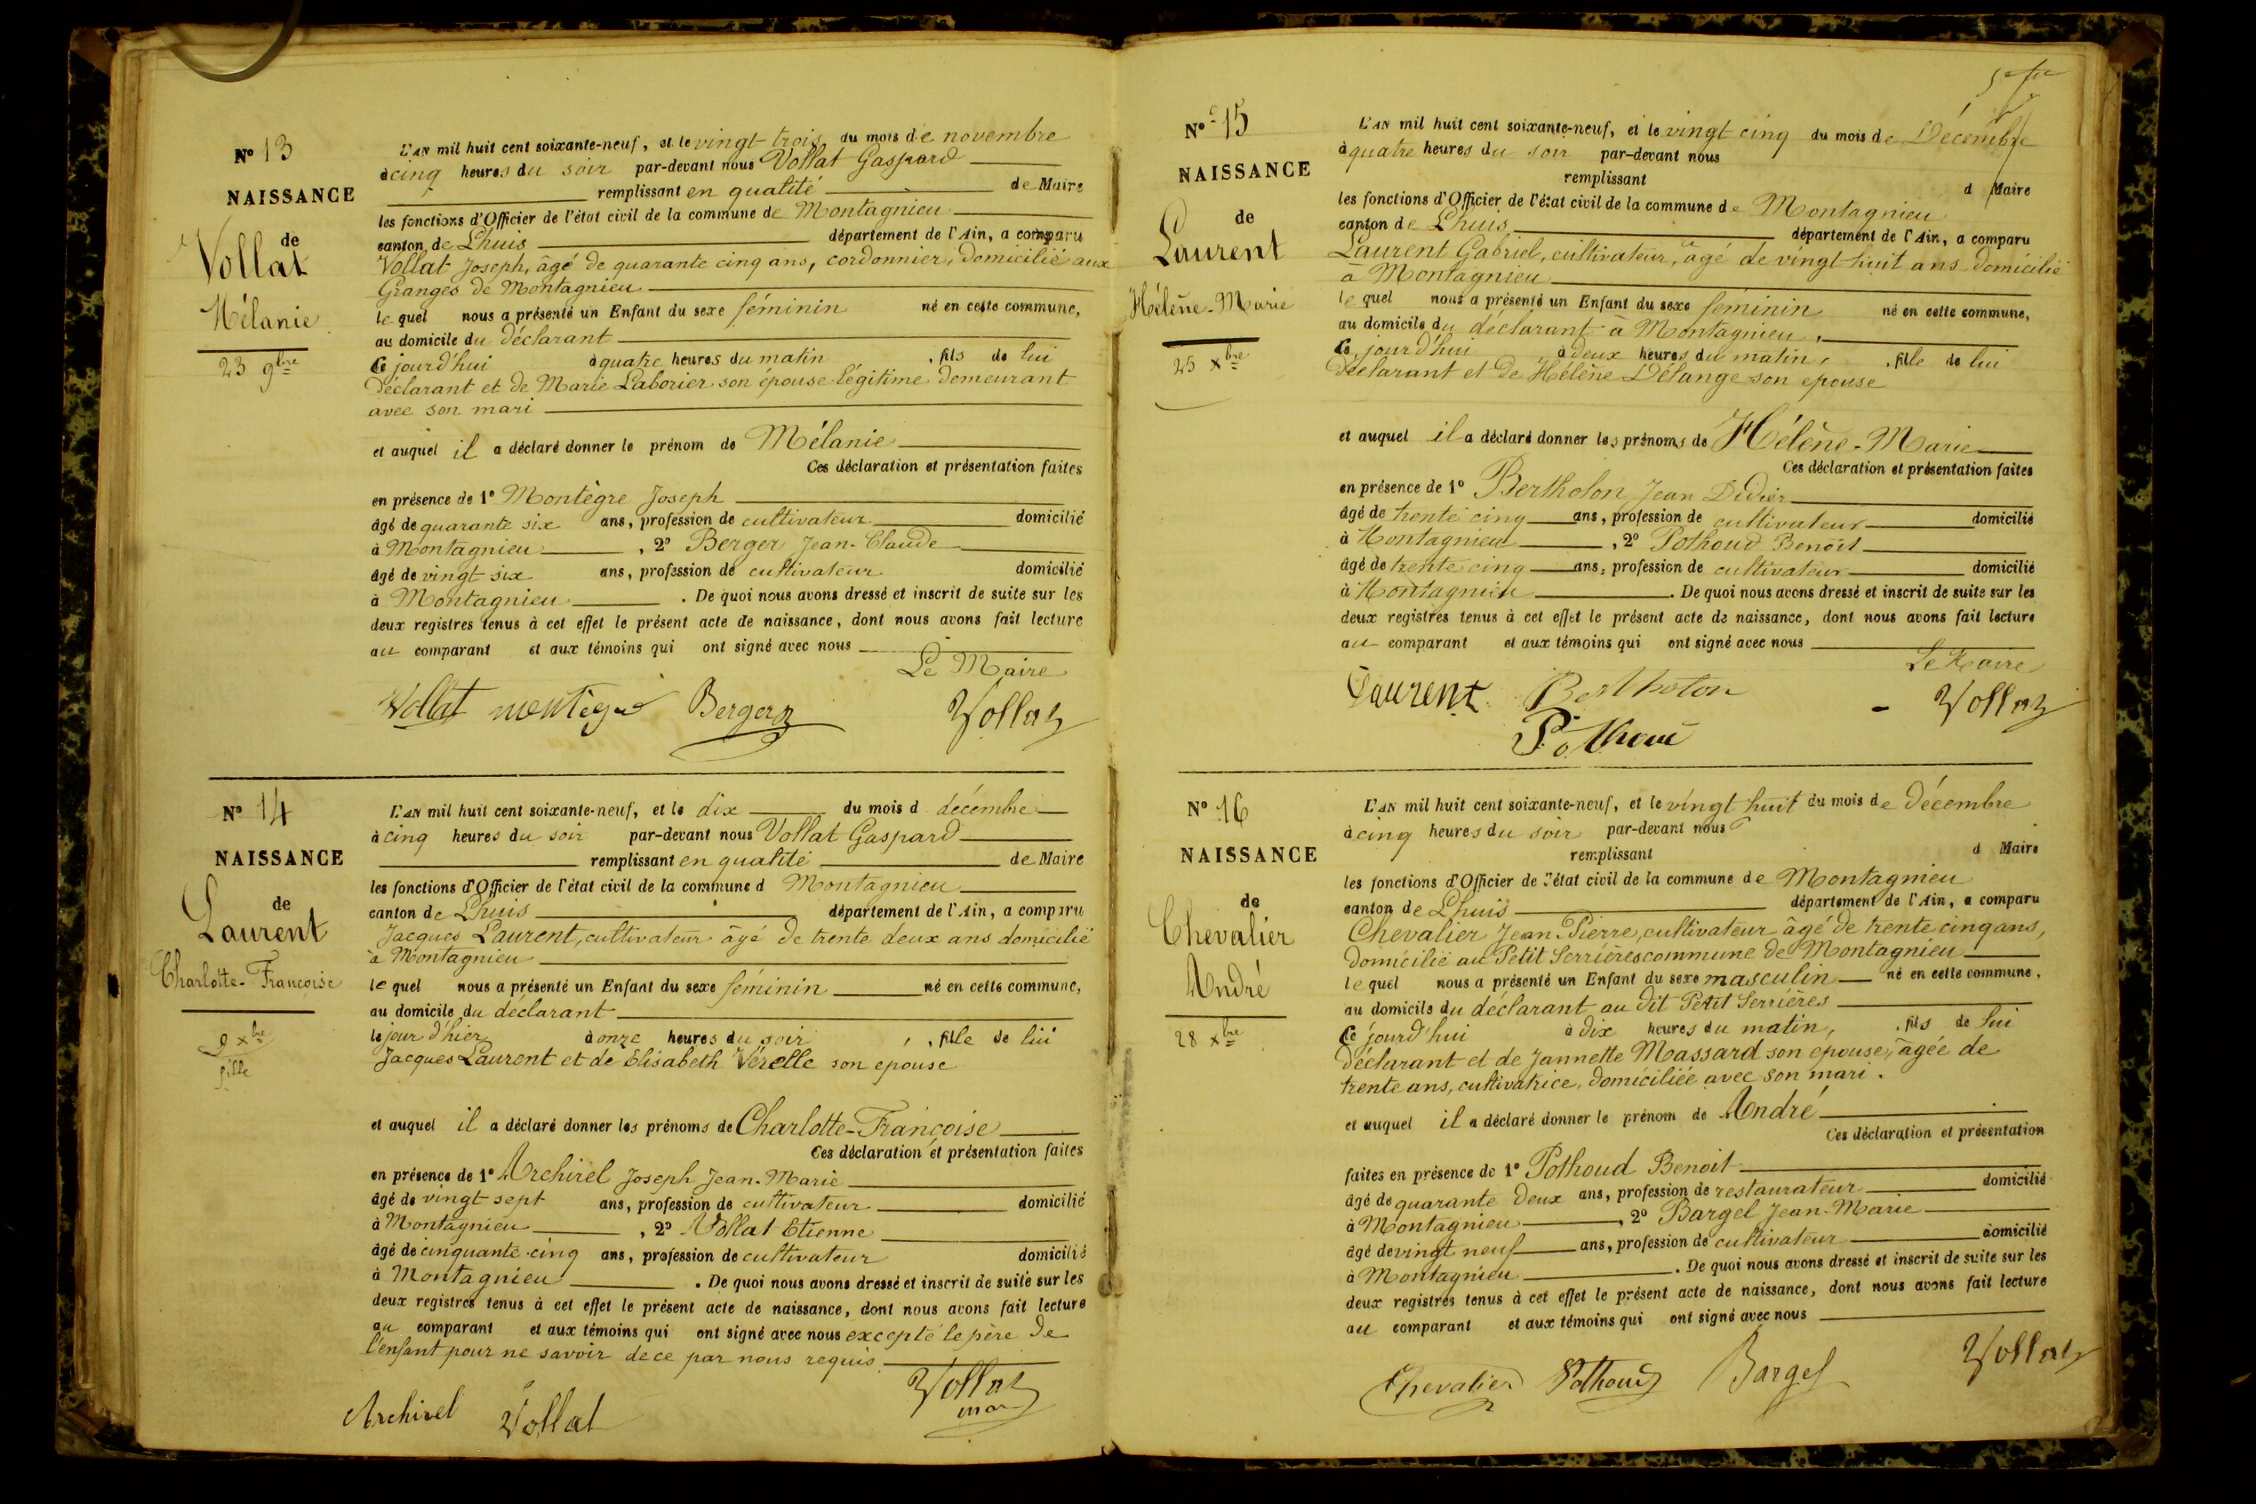 Nº 13
NAISSANCE
de
Vollat
Mélanie
23 9bre
L'AN mil huit cent soixante-neuf, et le vingt trois du mois de novembre
à cinq heures du soir par-devant nous Vollat Gaspard
remplissant en qualité de Maire
les fonctions d'Officier de l'état civil de la commune de Montagnieu
canton de Lhuis département de l'Ain, a comparu
Vollat Joseph, âgé de quarante cinq ans, cordonnier, domicilié aux
Granges de Montagnieu
le quel nous a présenté un Enfant du sexe féminin né en cette commune,
au domicile du déclarant
Ce jourd'hui à quatre heures du matin, fils de lui
déclarant et de Marie Laborier son épouse légitime demeurant
avec son mari
et auquel il a déclaré donner le prénom de Mélanie
Ces déclaration et présentation faites
en présence de 1º Montègre Joseph
âgé de quarante six ans, profession de cultivateur domicilié
à Montagnieu, 2º Berger Jean-Claude
âgé de vingt six ans, profession de cultivateur domicilié
à Montagnieu. De quoi nous avons dressé et inscrit de suite sur les
deux registres tenus à cet effet le présent acte de naissance, dont nous avons fait lecture
au comparant et aux témoins qui ont signé avec nous
Le Maire
Vollat montègre Berger Vollat
Nº 14
NAISSANCE
de
Laurent
Charlotte-Françoise
9 xbre
fille
L'AN mil huit cent soixante-neuf, et le dix du mois d décembre
à cinq heures du soir par-devant nous Vollat Gaspard
remplissant en qualité de Maire
les fonctions d'Officier de l'état civil de la commune d Montagnieu
canton de Lhuis département de l'Ain, a comparu
Jacques Laurent, cultivateur âgé de trente deux ans domicilié
à Montagnieu
le quel nous a présenté un Enfant du sexe féminin né en cette commune,
au domicile du déclarant
le jour d'hier à onze heures du soir, fille de lui
Jacques Laurent et de Elisabeth Vérelle son epouse
et auquel il a déclaré donner les prénoms de Charlotte-Françoise
Ces déclaration et présentation faites
en présence de 1º Archirel Joseph Jean-Marie
âgé de vingt sept ans, profession de cultivateur domicilié
à Montagnieu, 2º Vollat Etienne
âgé de cinquante-cinq ans, profession de cultivateur domicilié
à Montagnieu. De quoi nous avons dressé et inscrit de suite sur les
deux registres tenus à cet effet le présent acte de naissance, dont nous avons fait lecture
au comparant et aux témoins qui ont signé avec nous excepté le père de
l'enfant pour ne savoir de ce par nous requis
Archirel Vollat Vollat
Nº 15
NAISSANCE
de
Laurent
Hélène-Marie
25 xbre
L'AN mil huit cent soixante-neuf, et le vingt cinq du mois de Décembre
à quatre heures du soir par-devant nous
remplissant d Maire
les fonctions d'Officier de l'état civil de la commune de Montagnieu
canton de Lhuis département de l'Ain, a comparu
Laurent Gabriel, cultivateur, âgé de vingt-huit ans domicilié
à Montagnieu
le quel nous a présenté un Enfant du sexe féminin né en cette commune,
au domicile du déclarant à Montagnieu,
Ce jourd'hui à deux heures du matin, fille de lui
déclarant et de Hélène Délange son epouse
et auquel il a déclaré donner les prénoms de Hélène-Marie
Ces déclaration et présentation faites
en présence de 1º Bertholon Jean Didier
âgé de trente cinq ans, profession de cultivateur domicilié
à Montagnieu, 2º Pothoud Benoît
âgé de trente cinq ans, profession de cultivateur domicilié
à Montagnieu. De quoi nous avons dressé et inscrit de suite sur les
deux registres tenus à cet effet le présent acte de naissance, dont nous avons fait lecture
au comparant et aux témoins qui ont signé avec nous
Le Maire
Laurent Bertholon Vollat
Pothoud
Nº 16
NAISSANCE
de
Chevalier
André
28 xbre
L'AN mil huit cent soixante-neuf, et le vingt huit du mois de décembre
à cinq heures du soir par-devant nous
remplissant d Maire
les fonctions d'Officier de l'état civil de la commune de Montagnieu
canton de Lhuis département de l'Ain, a comparu
Chevalier Jean-Pierre, cultivateur âgé de trente cinq ans,
domicilié au Petit Serrières commune de Montagnieu
le quel nous a présenté un Enfant du sexe masculin né en cette commune.
au domicile du déclarant au dit Petit Serrières
Ce jourd'hui à dix heures du matin, fils de lui
déclarant et de Jannette Massard son épouse, âgée de
trente ans, cultivatrice, domiciliée avec son mari.
et auquel il a déclaré donner le prénom de André
Ces déclaration et présentation
faites en présence de 1º Pothoud Benoit
âgé de quarante deux ans, profession de restaurateur domicilié
à Montagnieu, 2º Bargel Jean-Marie
âgé de vingt neuf ans, profession de cultivateur domicilié
à Montagnieu. De quoi nous avons dressé et inscrit de suite sur les
deux registres tenus à cet effet le présent acte de naissance, dont nous avons fait lecture
au comparant et aux témoins qui ont signé avec nous
Chevalier Pothoud Bargel Vollat